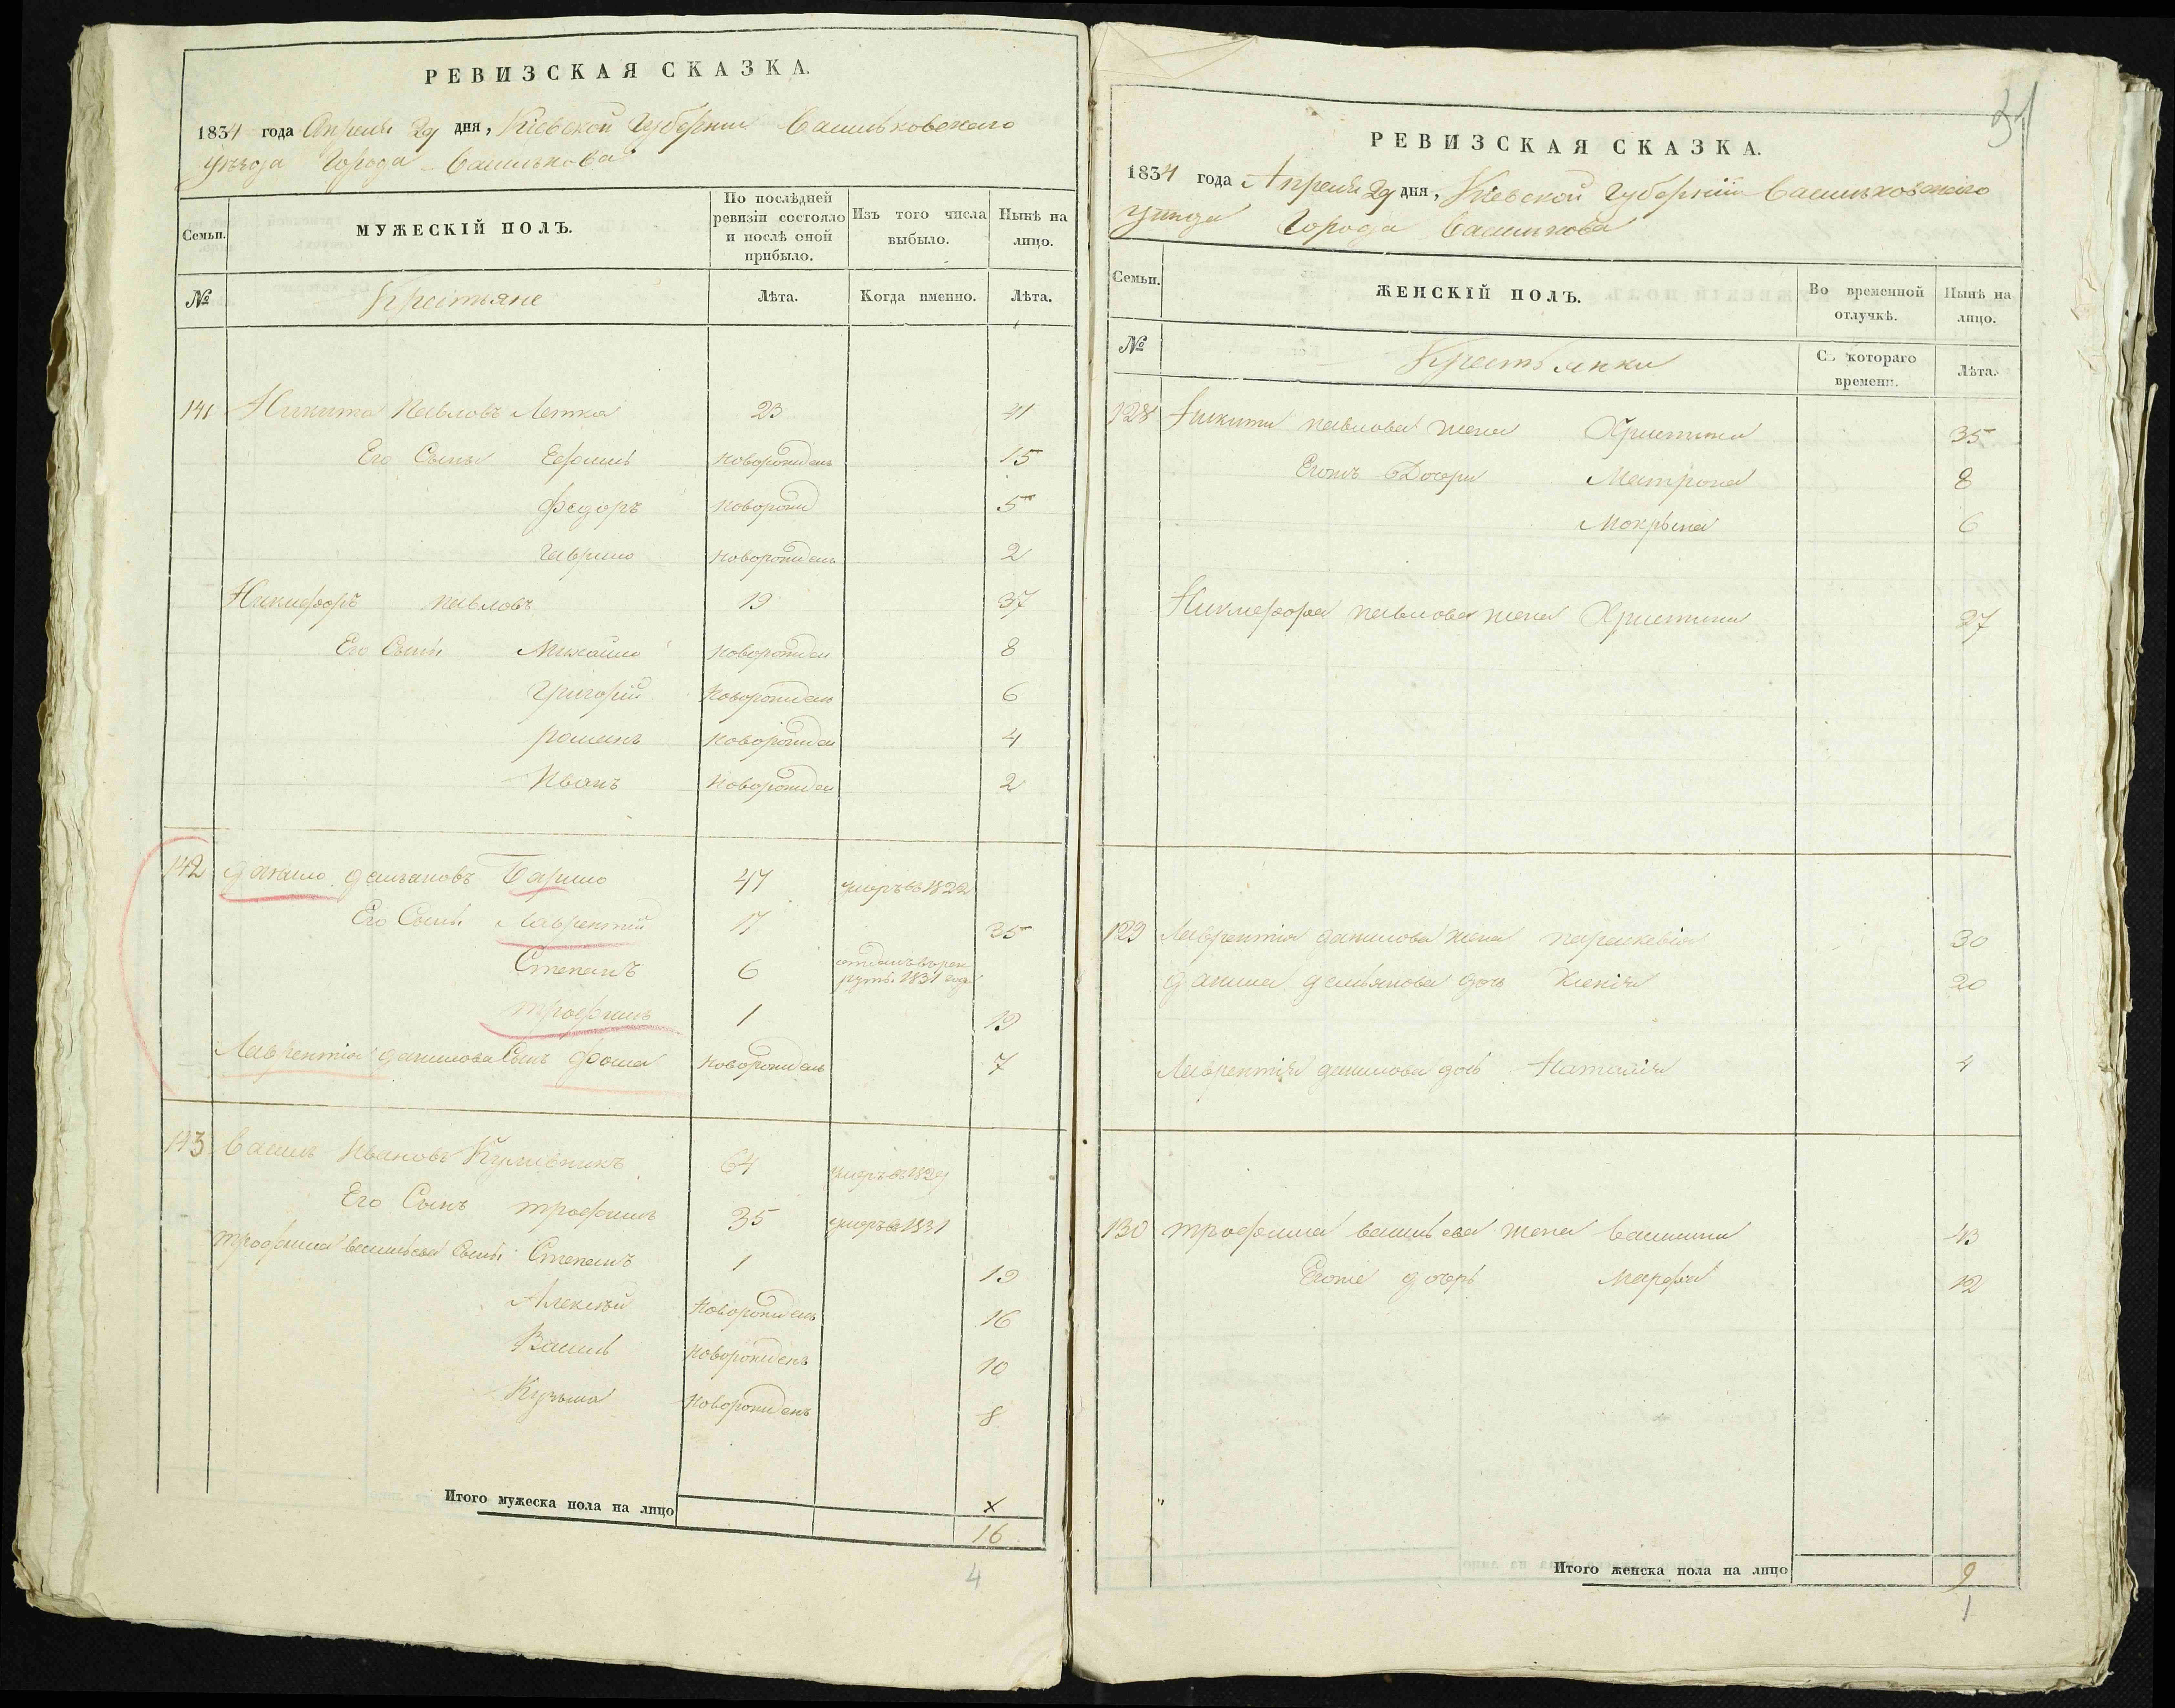 РЕВИЗСКАЯ СКАЗКА.
1834 года Апреля 29 дня, Кіевской Губерніи Васильковскаго
уѣзда Города Василькова
Семьи.
МУЖЕСКІЙ ПОЛЪ.
По послѣдней ревизіи состояло и послѣ оной прибыло.
Изъ того числа выбыло.
Нынѣ на лицо.
№ Крестьяне Лѣта. Когда именно. Лѣта.
141 Никита Павловъ Летка 23 41
Его Сыны Ефимъ новорожденъ 15
Федоръ новорожд 5
Гаврило новорожденъ 2
Никифоръ павловъ 19 37
Его Сыны Михайло новорожден 8
Григорій новорожденъ 6
романъ новорожден 4
Иванъ новорожден 2
142 данило демьановъ Барило 47 умеръ въ 1822
Его Сыны Лаврентій 17 35
Степанъ 6 отданъ въ рекруты 1831 года
трофимъ 1 19
Лаврентія данилова Сынъ фома новорожденъ 7
143 Василь Ивановъ 64 умеръ въ 1829
Его Сынъ трофимъ 35 умеръ въ 1831
трофима васильева Сыны Степанъ 1 19
Алексѣй новорожденъ 16
Василь новорожденъ 10
Кузьма новорожденъ 8
х
Итого мужеска пола на лицо 16
4
31
РЕВИЗСКАЯ СКАЗКА.
1834 года Апреля 29 дня, Кіевской Губерніи Васильковскаго
уѣзда Города Василькова
Семьи.
ЖЕНСКІЙ ПОЛЪ.
Во временной отлучкѣ.
Нынѣ на лицо.
№ Крестьянки Съ котораго времени. Лѣта.
128 Никиты павлова жена Христина 35
Егожъ Дочери Матрона 8
Мокрына 6
Никифора павлова жена Христина 27
129 Лаврентія данилова жена параскевія 30
данила демьянова дочь Ксенія 20
Лаврентія данилова дочь Наталія 4
130 трофима васильева жена Василина 43
Егоже дочерь Марфа 12
Итого женска пола на лицо 9
1